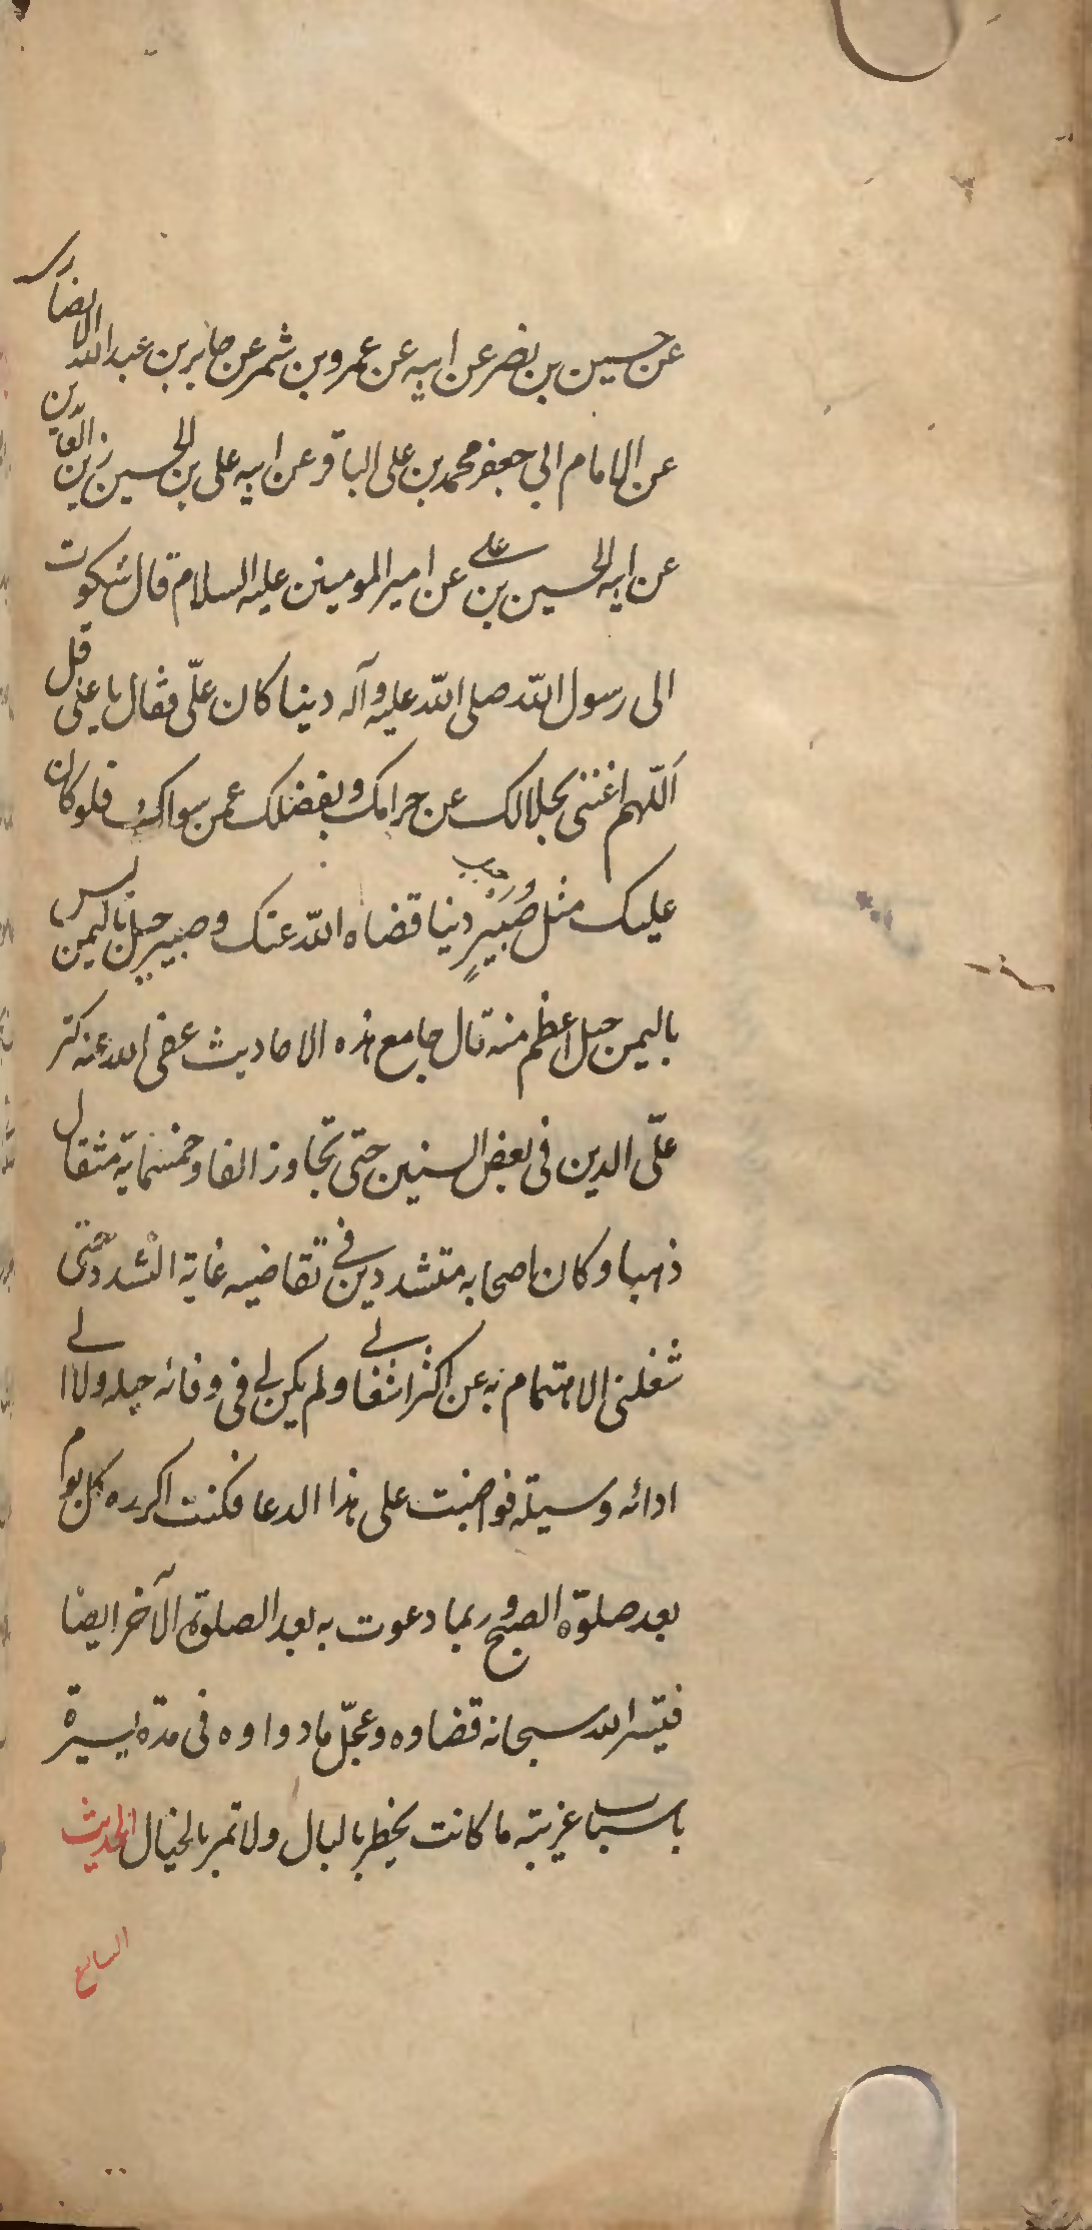 عن حسين بن نضر عن ابيه عن عمرو بن شمر عن جابر بن عبد الله الانصاري
عن الامام ابي جعفر محمد بن علي الباقر عن ابيه علي بن الحسين زين العابدين
عن ابيه الحسين بن علي عن امير المومنين عليه السلام قال شكوت
الى رسول الله صلى الله عليه وآله دينا كان علّي فقال يا علي قل
اللّهم اغنني بحلالك عن حرامك وبفضلك عمن سواك فلو كان
عليك مثل صُبَيْرٍ دينا قضاه الله عنك وصبير جبل باليمن ليس
باليمن جبل اعظم منه قال جامع هذه الاحاديث عفى الله عنه كثر
علّي الدين في بعض السنين حتى تجاوز الفا وخمسماية مثقال
ذهبا وكان اصحابه متشددين في تقاضيه غاية التشدد حتى
شغلني الاهتمام به عن اكثر اشغالي ولم يكن لي في وفائه حيله ولا الى
ادائه وسيلة فواضبت على هذا الدعا فكنت اكرره كل يوم
بعد صلوة الصبح وربما دعوت به بعد الصلوة الآخر ايضا
فيسّر الله سبحانه قضاوه وعجّل ما دوا وه في مدة يسيرة
باسباب غريبة ما كانت يخطر بالبال ولا تمر بالخيال الحديث
السابع